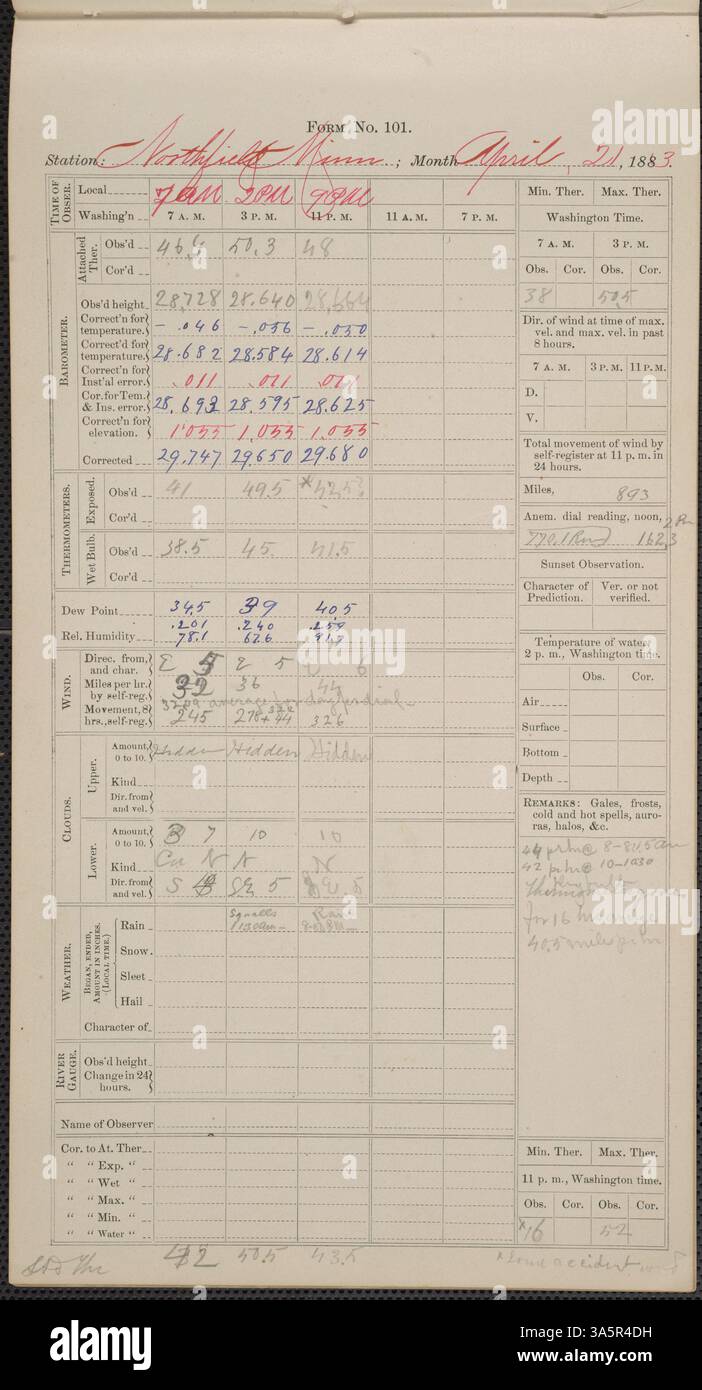 Form No. 101.
Station: Northfield Minn ; Month April, 21, 1883.
Time of Obser.
Local 7 AM 2 PM 9 PM
Washing'n 7 A. M. 3 P. M. 11 P. M. 11 A. M. 7 P. M.
Min. Ther. Max. Ther.
Washington Time.
7 A. M. 3 P. M.
Obs. Cor. Obs. Cor.
38 50.5
Barometer.
Attached Ther.
Obs'd 50.3 48
Cor'd
Obs'd height 28.728 28.640 28.664
Correct'n for temperature. - .046 - .056 - .050
Correct'd for temperature. 28.682 28.584 28.614
Correct'n for Inst'al error. .011 .011 .011
Cor. for Tem. & Ins. error. 28.693 28.595 28.625
Correct'n for elevation. 1.055 1.055 1.055
Corrected 29.747 29.650 29.680
Dir. of wind at time of max. vel. and max. vel. in past 8 hours.
7 A. M. 3 P. M. 11 P. M.
D.
V.
Total movement of wind by self-register at 11 p. m. in 24 hours.
Miles, 893
Anem. dial reading, noon, 2 Pm
770.1 162.3
Thermometers.
Exposed.
Obs'd 41 49.5 *42.5?
Cor'd
Wet Bulb.
Obs'd 38.5 45. 41.5
Cor'd
Sunset Observation.
Character of Prediction. Ver. or not verified.
Dew Point 34.5 39 40.5
.201 .240 .259
Rel. Humidity 78.1 67.6
Temperature of water, 2 p. m., Washington time.
Obs. Cor.
Air
Surface
Bottom
Depth
Wind.
Direc. from, and char. E 5 E 5 6
Miles per hr. by self-reg. 32 36 44
average for day
Movement, 8 hrs., self-reg. 245 326
Clouds.
Upper.
Amount, 0 to 10. Hidden Hidden Hidden
Kind
Dir. from and vel.
Lower.
Amount, 0 to 10. 7 10 10
Kind N N
Dir. from and vel. S SE 5
Remarks: Gales, frosts, cold and hot spells, auroras, halos, &c.
44 pr hr @ 8-8
42 pr hr @ 10-1030
for 16 hr
40.5 miles pr hr
Weather.
Began, ended, amount in inches. (Local time.)
Rain Squalls Rain
Snow
Sleet
Hail
Character of
River Gauge.
Obs'd height
Change in 24 hours.
Name of Observer
Cor. to At. Ther
“ “ Exp. “
“ “ Wet “
“ “ Max. “
“ “ Min. “
“ “ Water “
Min. Ther. Max. Ther.
11 p. m., Washington time.
Obs. Cor. Obs. Cor.
*16 52
42 50.5 43.5
*Some accident
alamy
Image ID: 3A5R4DH
www.alamy.com